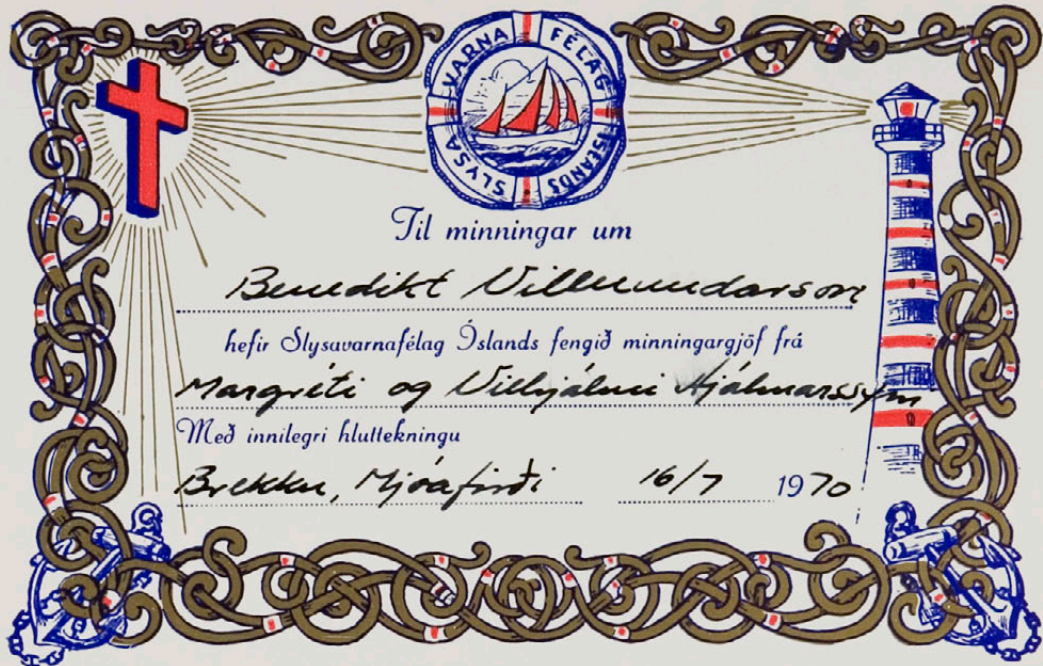 SLYSAVARNAFÉLAG ÍSLANDS
Til minningar um
Benedikt Vilmundarson
hefir Slysavarnafélag Íslands fengið minningargjöf frá
Margréti og Vilhjálmi Hjálmarssyni
Með innilegri hluttekningu
Brekku, Mjóafirði 16/7 1970